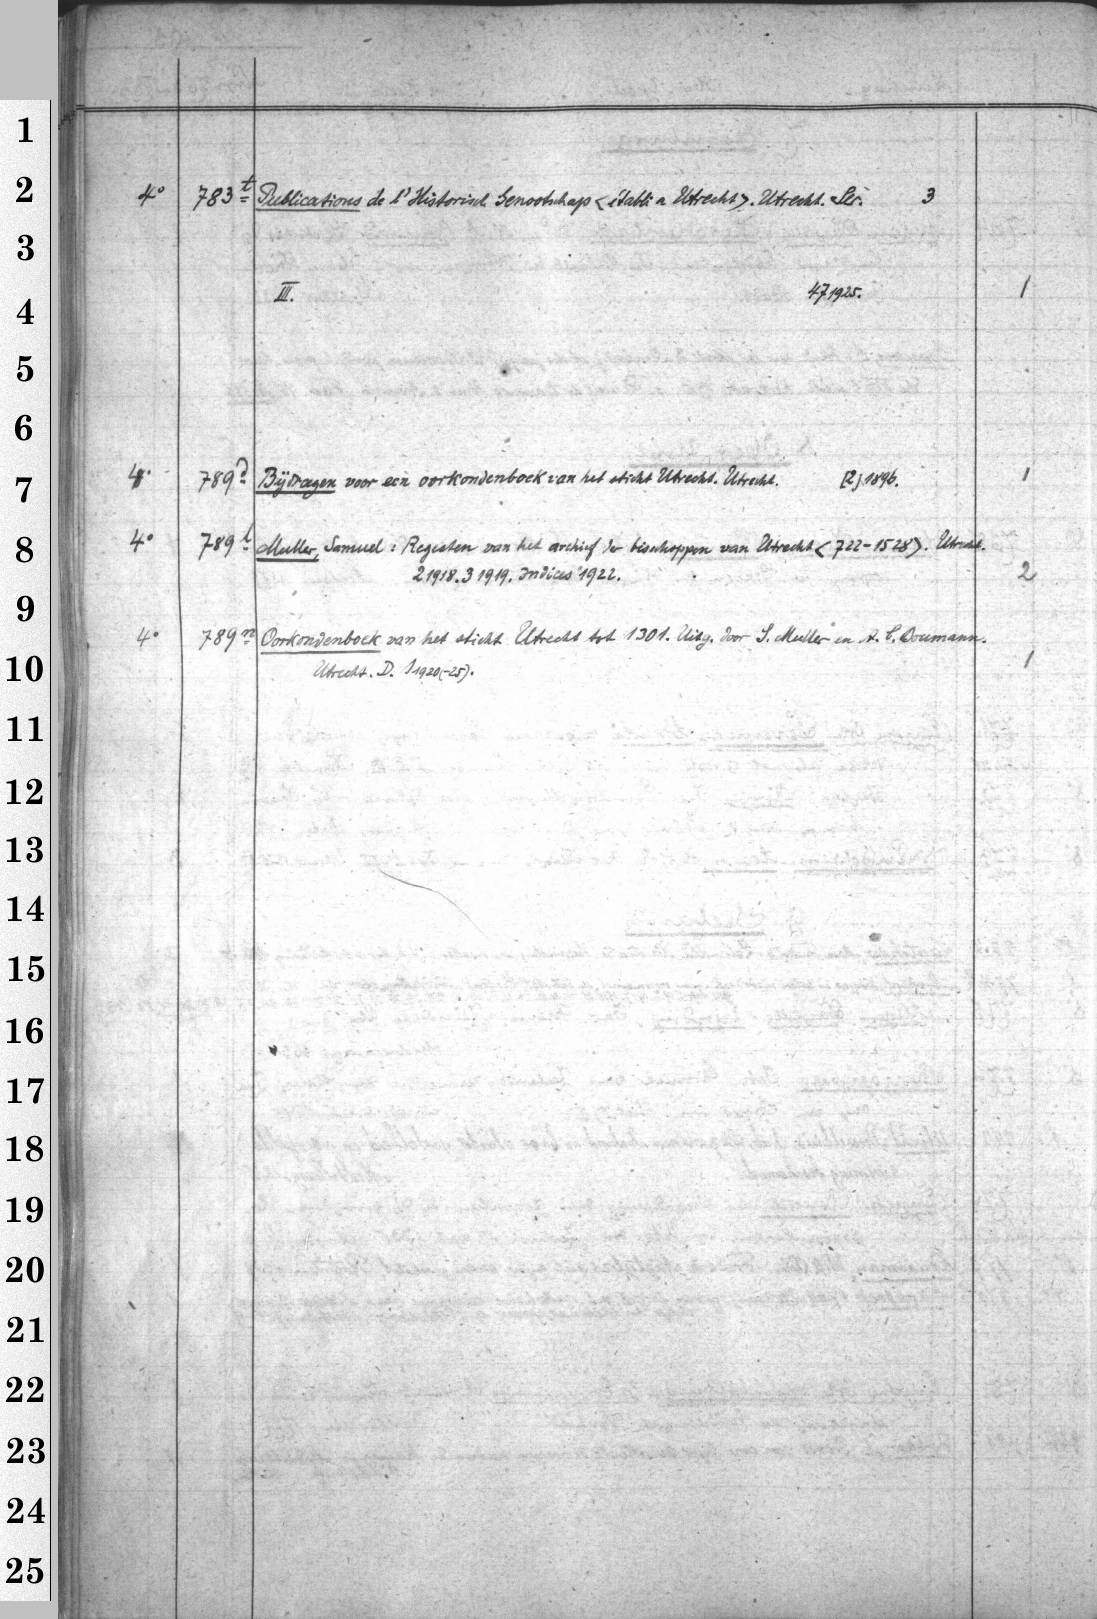 1
2
4° 783 t Publications de l'Historisch Genootschap <établi a Utrecht>. Utrecht. Sér. 3
3
III. 47 1925. 1
4
5
6
4° 789 d Bijdragen voor een oorkondenboek van het sticht Utrecht. Utrecht. [2] 1896. 1
7
4° 789 l Muller, Samuel: Regesten van het archief der bisschoppen van Utrecht <722-1528>. Utrecht.
8
2 1918. 3 1919. Indices 1922. 2
9
4° 789 n Oorkondenboek van het sticht Utrecht tot 1301. Uitg. door S. Muller en A. C. Bouman.
10
Utrecht. D. 1 1920(-25). 1
11
12
13
14
15
16
17
18
19
20
21
22
23
24
25